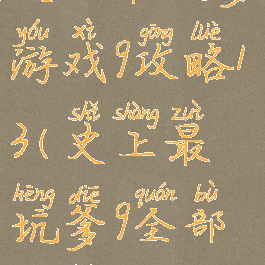 yóu xì gōng lüè
游戏9攻略1
shǐ shàng zuì
3(史上最
kēng diē quán bù
坑爹9全部